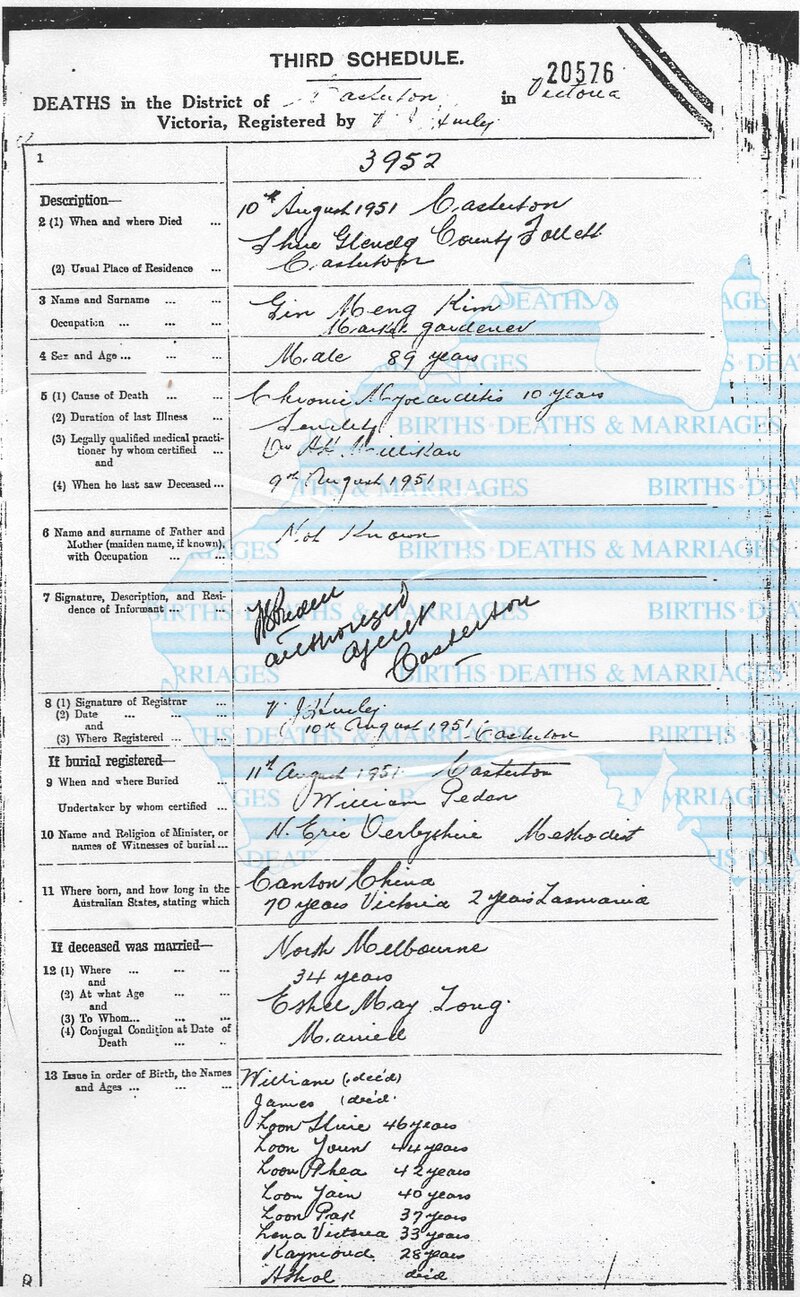 THIRD SCHEDULE.
20576
DEATHS in the District of Casterton in Victoria
Victoria, Registered by Hurley
1
3952
Description—
2 (1) When and where Died ...
10th August 1951 Casterton
Shire Glenelg County Follett
(2) Usual Place of Residence ...
Casterton
3 Name and Surname ... ...
Gin Meng Kim
Occupation ... ... ...
Market gardener
4 Sex and Age ... ... ...
Male 89 years
5 (1) Cause of Death ... ...
Chronic Myocarditis 10 years
(2) Duration of last Illness ...
Senility
(3) Legally qualified medical practi-
tioner by whom certified ...
Dr Millikan
and
(4) When he last saw Deceased ...
9th August 1951
6 Name and surname of Father and
Mother (maiden name, if known),
with Occupation ... ...
Not Known
7 Signature, Description, and Resi-
dence of Informant ... ...
authorized
agent
Casterton
8 (1) Signature of Registrar ...
V. J. Hurley
(2) Date ... ... ...
and
10th August 1951
(3) Where Registered ... ...
Casterton
If burial registered—
9 When and where Buried ...
11th August 1951 Casterton
Undertaker by whom certified ...
William Peden
10 Name and Religion of Minister, or
names of Witnesses of burial ...
N. Eric Derbyshire Methodist
11 Where born, and how long in the
Australian States, stating which
Canton China
70 years Victoria 2 years Tasmania
If deceased was married—
12 (1) Where ... ... ...
North Melbourne
and
(2) At what Age ... ...
34 years
and
(3) To Whom... ... ...
May Tong
(4) Conjugal Condition at Date of
Death ... ...
Married
13 Issue in order of Birth, the Names
and Ages ... ... ...
William (dec'd)
James (dec'd
Loon 46 years
Loon Youn 44 years
Loon 42 years
Loon 40 years
Loon Pak 37 years
Lena Victoria 33 years
Raymond 28 years
decd
BIRTHS·DEATHS & MARRIAGES